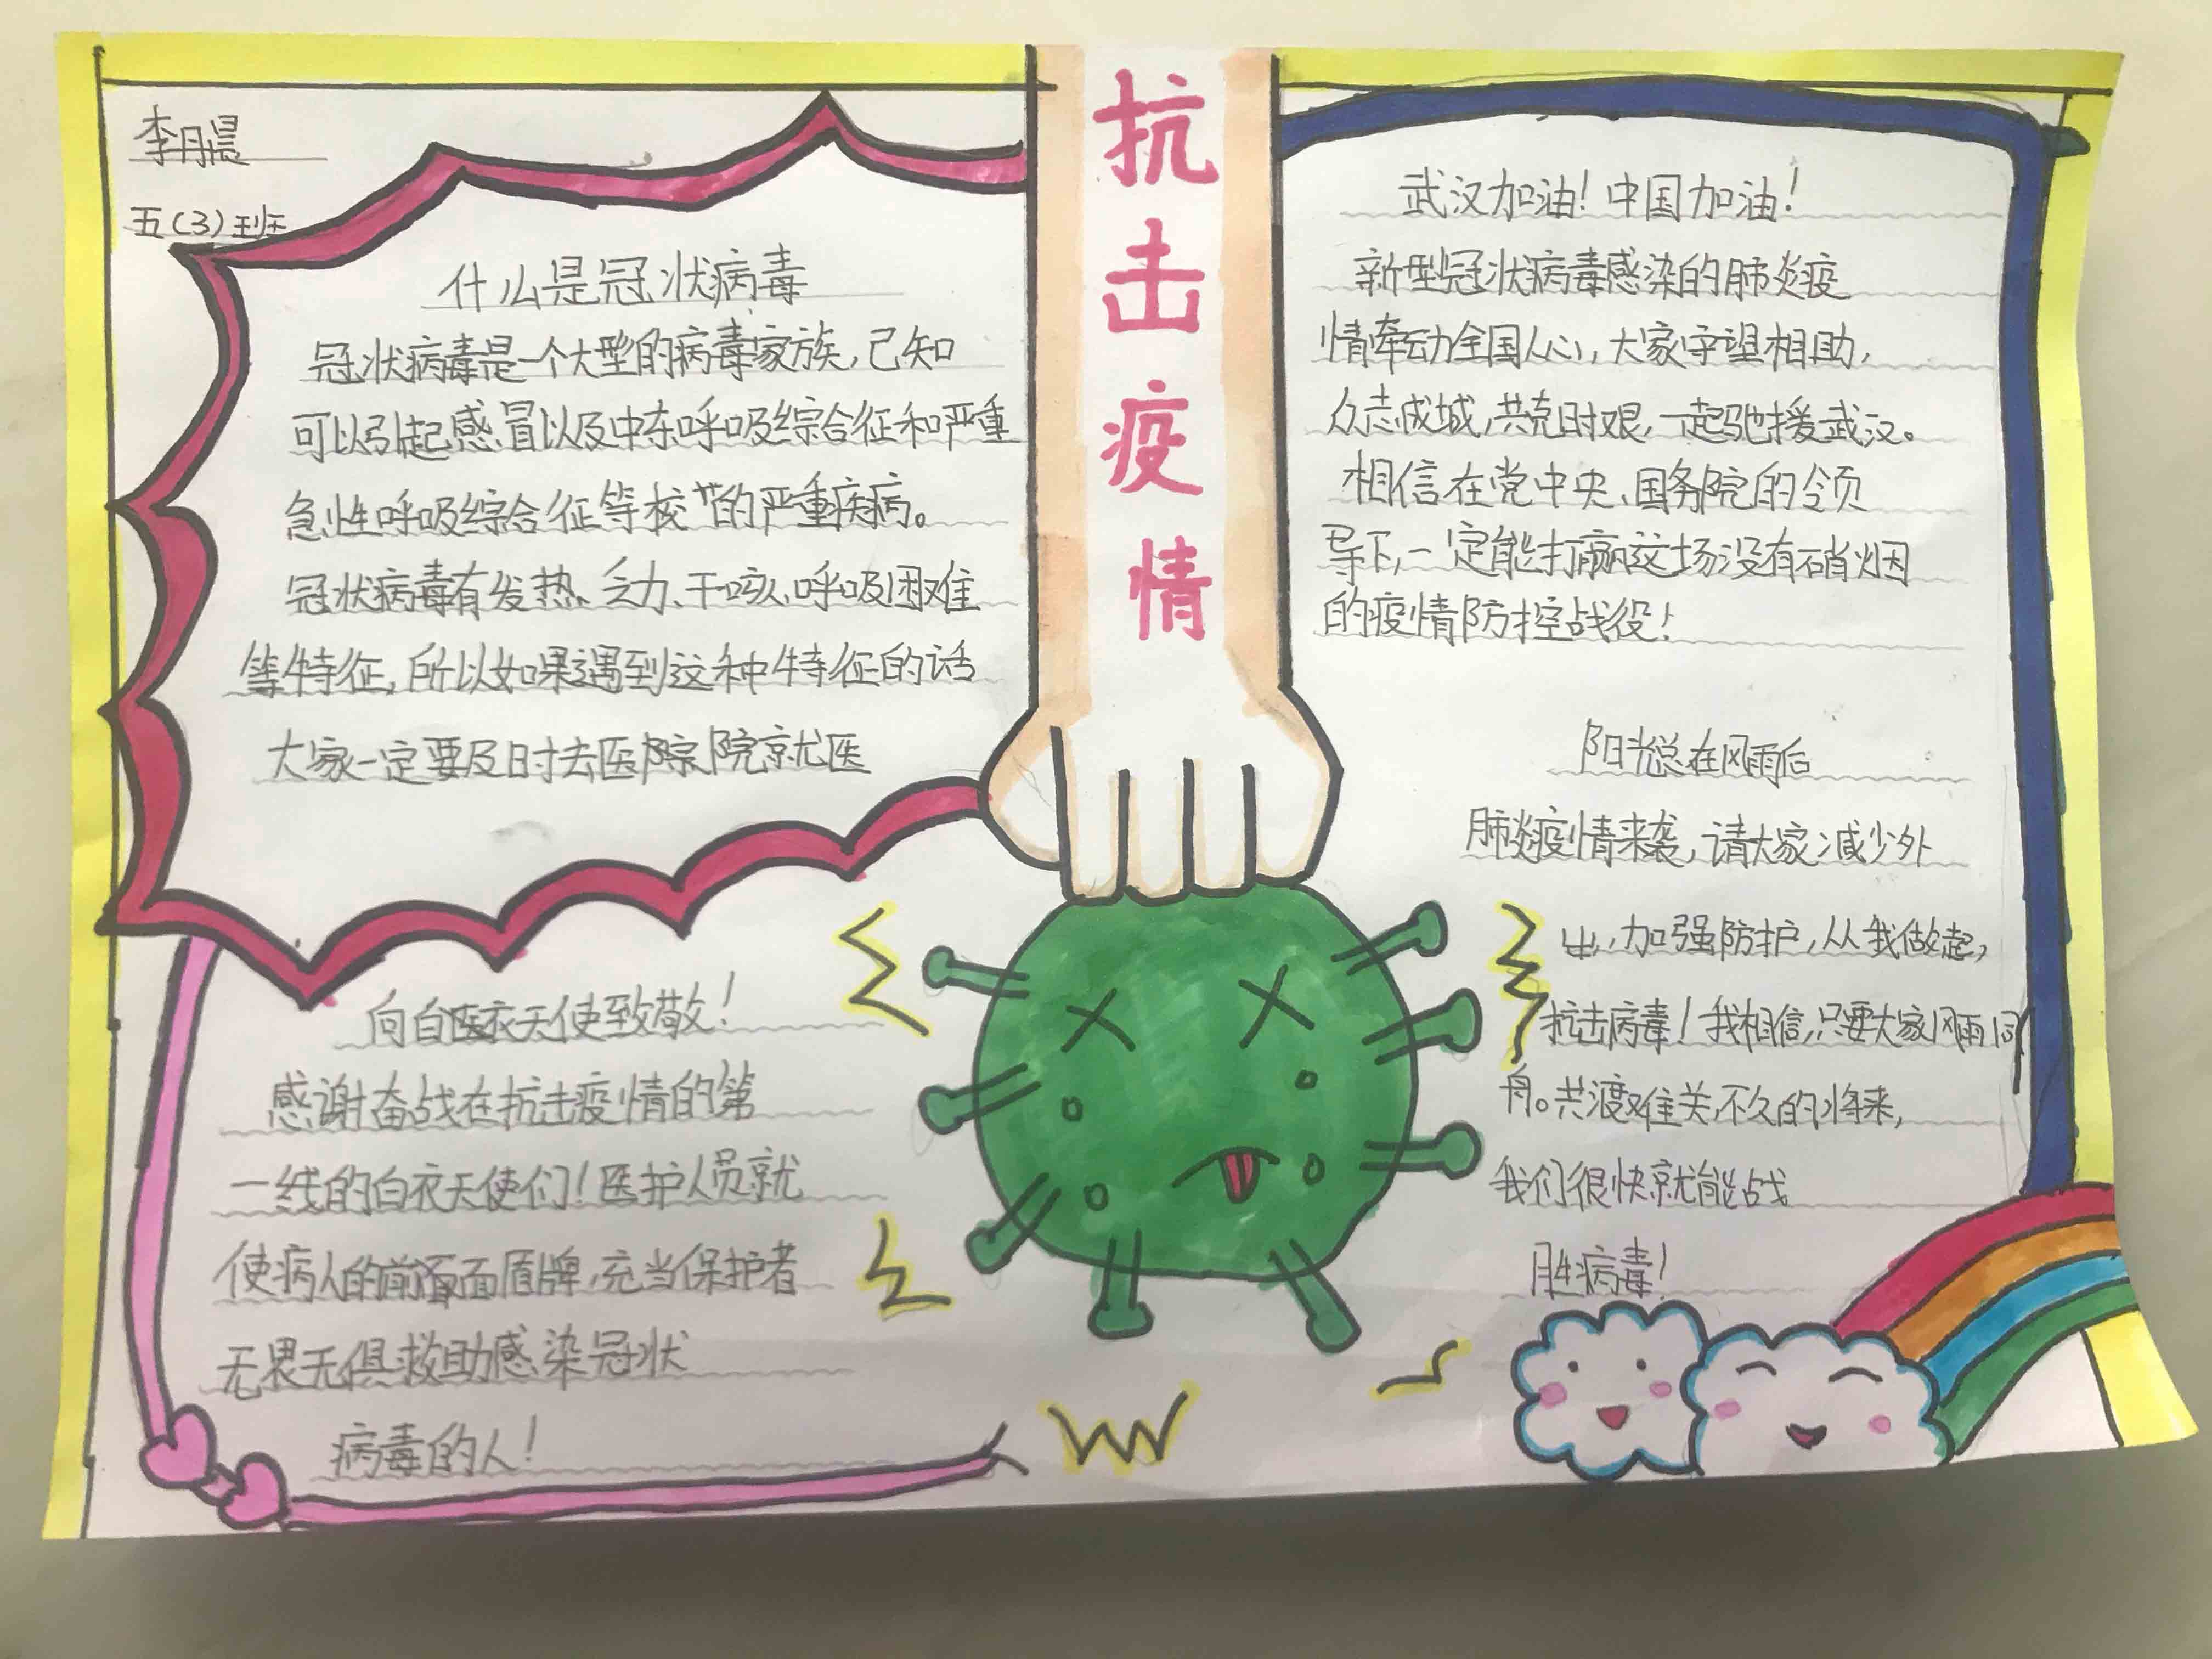 李月晨
五(3)班
什么是冠状病毒
冠状病毒是一个大型的病毒家族,已知
可以引起感冒以及中东呼吸综合征和严重
急性呼吸综合征等校的严重疾病。
冠状病毒有发热、乏力、干咳、呼吸困难
等特征,所以如果遇到这种特征的话
大家一定要及时去医院院就医
向白医衣天使致敬!
感谢奋战在抗击疫情的第
一线的白衣天使们!医护人员就
使病人的前面面盾牌,充当保护者
无畏无俱救助感染冠状
病毒的人!
抗击疫情
武汉加油!中国加油!
新型冠状病毒感染的肺炎疫
情牵动全国人心,大家守望相助,
众志成城,共克时艰,一起驰援武汉。
相信在党中央、国务院的领
导下,一定能打赢这场没有硝烟
的疫情防控战役!
阳光总在风雨后
肺炎疫情来袭,请大家减少外
出,加强防护,从我做起,
抗击病毒!我相信,只要大家风雨同
舟。共渡难关,不久的将来,
我们很快就能战
胜病毒!